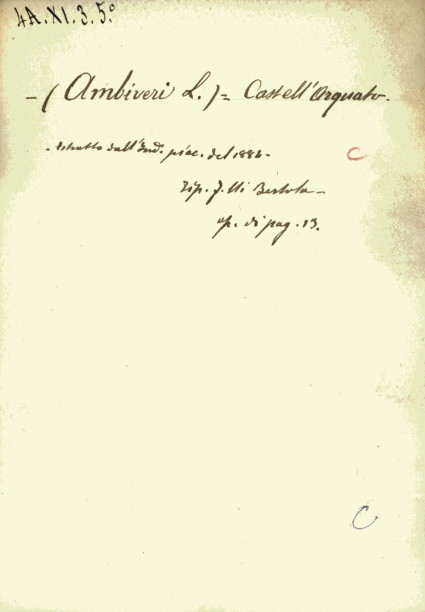 4A.XI.3.5°
- (Ambiveri L.) = Castell'Arquato.
- estratto dall'Ind. piac. del 1882 -
C
Tip. F.lli Bertola -
op. di pag. 13.
C